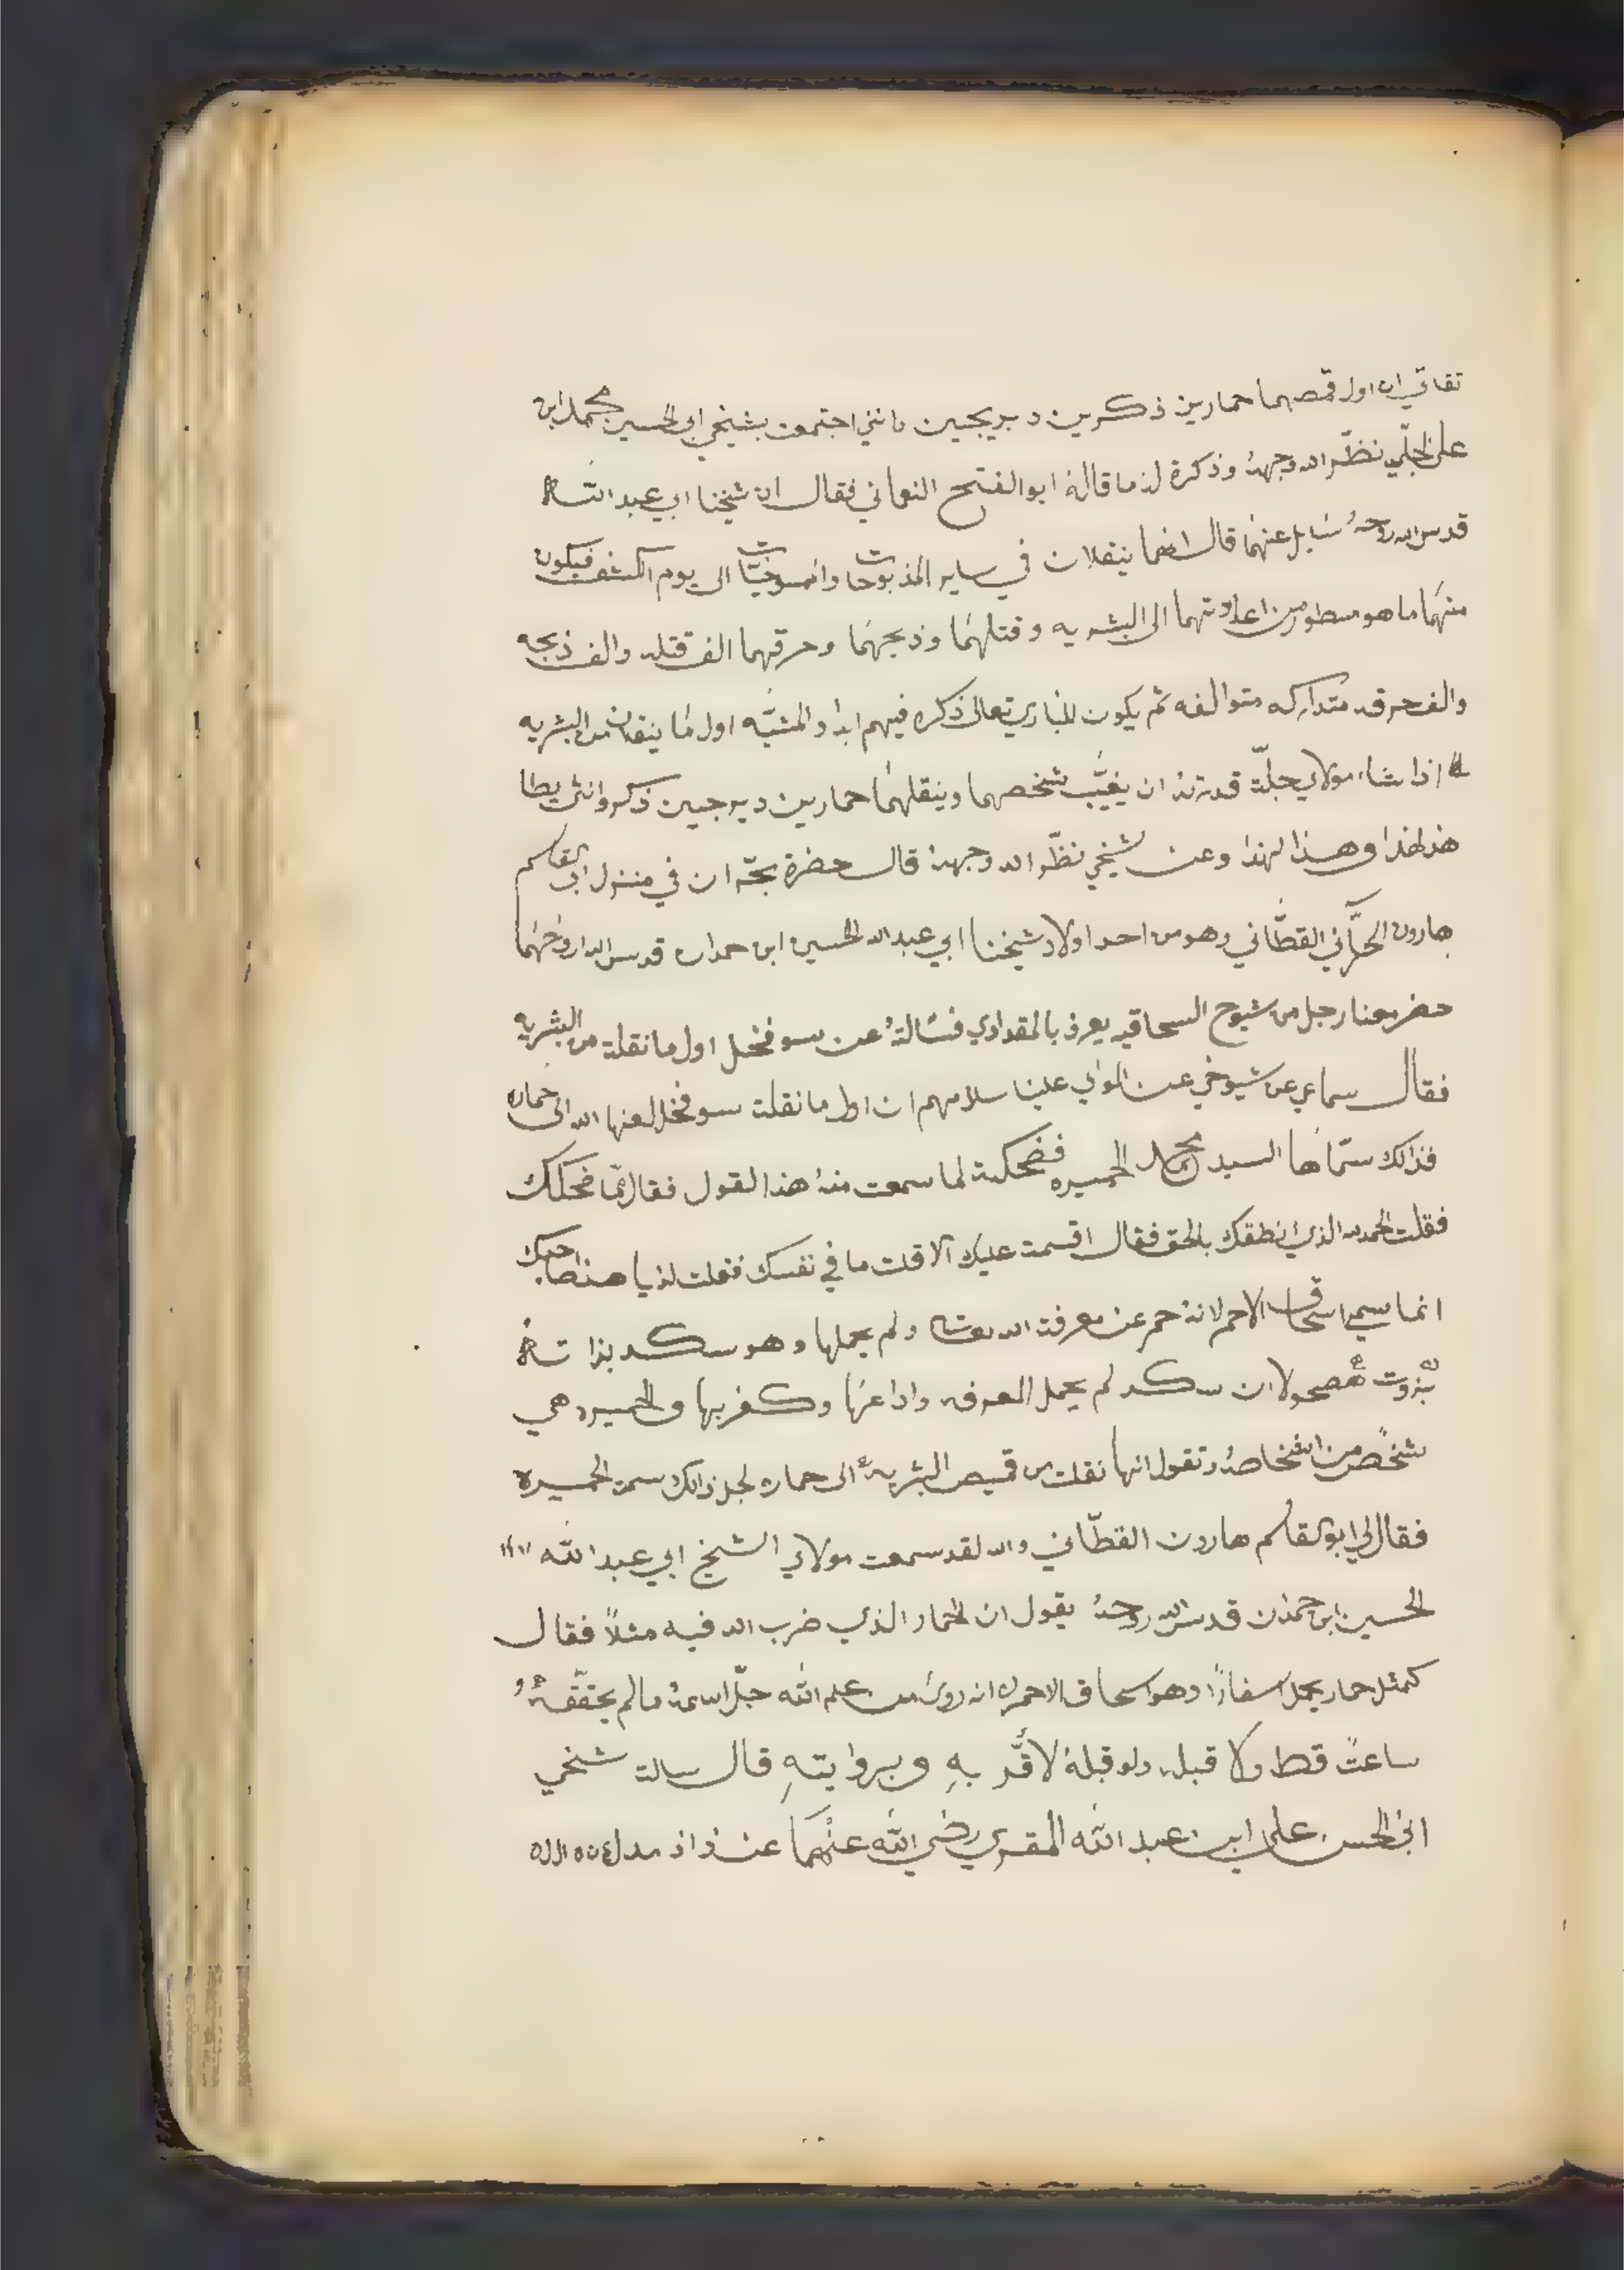 ثقاتي ان اول قمصهما حمارين ذكرين دبريجين وانني اجتمعت بشيخي ابي الحسين محمد ابن
علي الجلّي نظّر الله وجههُ وذكرة لذ ما قالهُ ابو الفتح النعماني فقال ان شيخنا ابي عبد الله
قدس الله روحهُ سايل عنهما قال انهما ينقلان في ساير المذبوحات والمسوخيّات الى يوم الكشف فيكون
منهما ما هو مسطور من اعادتهما الى البشريه وقتلهما وذبحهما وحرقهما الف قتله والف ذبحه
والف حرقه متداركه متوالفه ثم يكون للباري تعالى ذكره فيهم ابدا والمشيّه اول ما ينقلان من البشريه
اذا شاء مولاي جلّت قدرتهُ ان يغيّب شخصهما وينقلهما حمارين ديرجين ذكر وانثى يطا
هذا لهذا وهذا لهذا وعن شيخي نظّر الله وجههُ قال حضرة بحرّان في منزل ابي القاسم
هارون الحرّاني القطّاني وهو من احد اولاد شيخنا ابي عبد الله الحسين ابن حمدان قدس الله ارواحهما
حضر معنا رجل من شيوخ السحاقيه يعرف بالمقدادي فسالتهُ عن سوفخل اول ما نقلة من البشريه
فقال سماعي عن شيوخي عن الموالي علينا سلامهم ان اول ما نقلت سوفخل لعنها الله الى حماره
فذالك سمّاها السيد محمد الحميره فضحكة لما سمعت منهُ هذا القول فقال ممّا ضحكك
فقلت الحمد لله الذي انطقك بالحق فقال اقسمت عليك الا قلت ما في نفسك فقلت لهُ يا هذا صاحبك
انما سمي اسحاق الاحمر لانهُ حمر عن معرفة الله تعالى ولم يحملها وهو سكد
لان سكد لم يحمل المعرفه واداعها وكفر بها والحميره هي
شخص من اشخاصهُ وتقول انها نقلت من قميص البشريه الى حماره لجل ذالك سمت الحميره
فقال لي ابو القاسم هارون القطّاني والله لقد سمعت مولاي الشيخ ابي عبد الله
الحسين ابن حمدان قدس الله روحهُ يقول ان الحمار الذي ضرب الله فيه مثلاً فقال
كمثل حمار يحمل اسفارًا وهو اسحاق الاحمر لانه روى من علم الله جلّ اسمهُ ما لم يحققهُ
ساعتً قط ولا قبله ولو قبلهُ لاقّر بهِ وبروايتهِ قال سالت شيخي
ابي الحسن علي ابن عبد الله المقري رضي الله عنهما عن